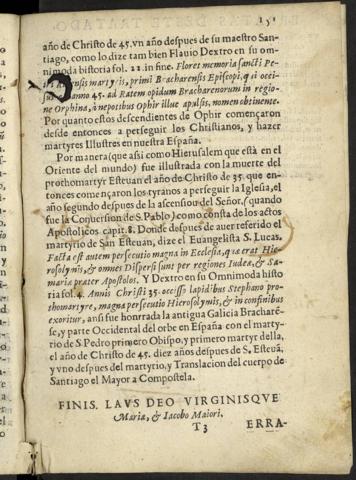 151
año de Christo de 45. vn año despues de su maestro San-
tiago, como lo dize tam bien Flauio Dextro en su om-
nimoda historia fol. 22. in fine. Floret memoria sancti Pe-
ensis martyris, primi Bracharensis Episcopi, qui occi-
anno 45. ad Ratem opidum Bracharenorum in regio-
ne Orphina, à nepotibus Ophir illuc apulsis, nomen obtinente.
Por quanto estos descendientes de Ophir començaron
desde entonces a perseguir los Christianos, y hazer
martyres Illustres en nuestra España.
Por manera (que asi como Hierusalem que està en el
Oriente del mundo) fue illustrada con la muerte del
prothomartyr Esteuan el año de Christo de 35. que en-
tonces començaron los tyranos a perseguir la Iglesia, el
año segundo despues de la ascension del Señor. (quando
fue la Conuersion de S. Pablo) como consta de los actos
Apostolicos capit. 8. Donde despues de auer referido el
martyrio de San Esteuan, dize el Euangelista S. Lucas.
Facta est autem persecutio magna in Ecclesia, quæ erat Hie-
rosolymis, & omnes Dispersi sunt per regiones Iudea, & Sa-
maria præter Apostolos. Y Dextro en su Omnimoda histo
ria fol. 4. Annis Christi 35. occisso lapidibus Stephano pro-
thomartyre, magna persecutio Hierosolymis, & in confinibus
exoritur, ansi fue honrrada la antigua Galicia Bracharẽ-
se, y parte Occidental del orbe en España con el marty-
rio de S. Pedro primero Obispo, y primero martyr della,
el año de Christo de 45. diez años despues de S. Esteuã,
y vno despues del martyrio, y Translacion del cuerpo de
Santiago el Mayor a Compostela.
FINIS. LAVS DEO VIRGINISQVE
Mariæ, & Iacobo Maiori.
T3 ERRA-